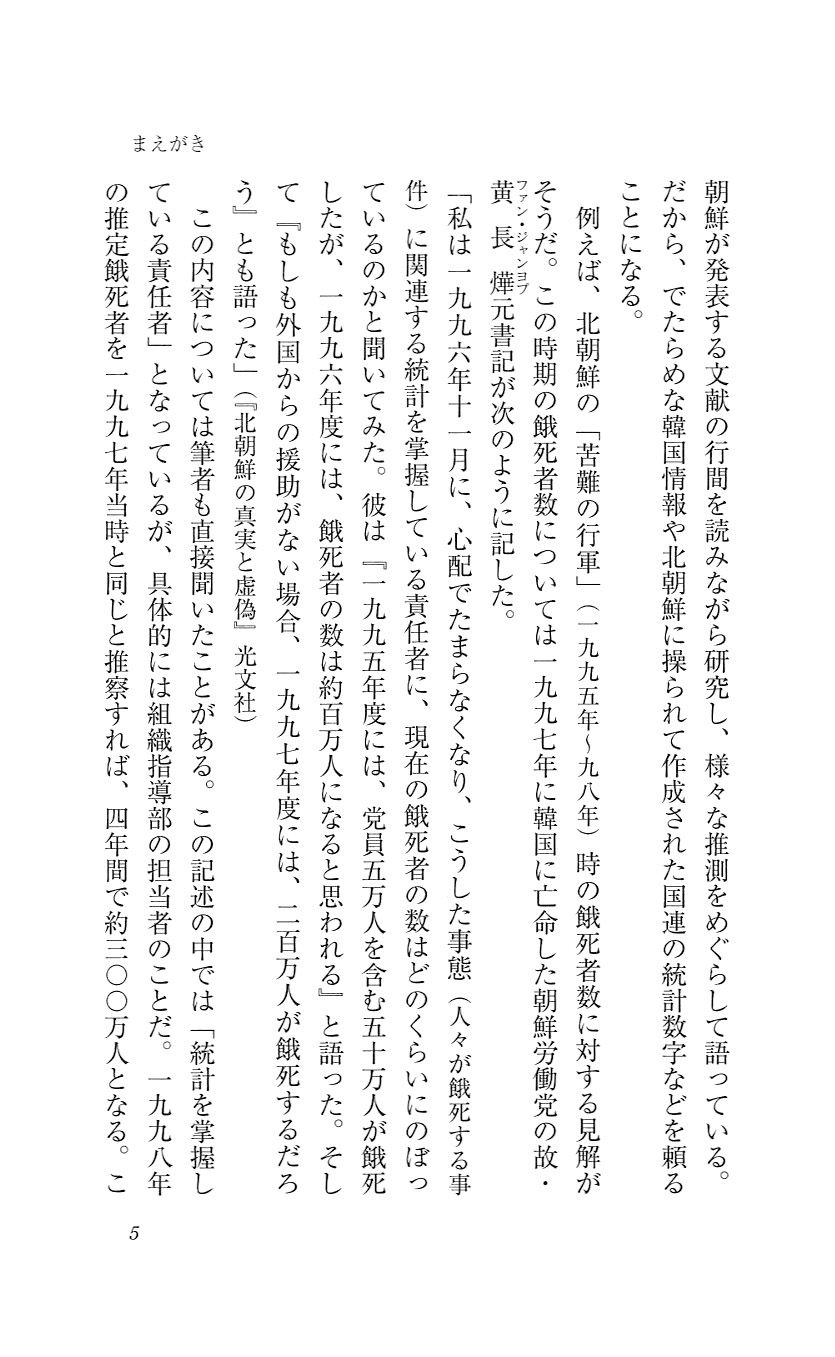 まえがき
朝鮮が発表する文献の行間を読みながら研究し、様々な推測をめぐらして語っている。
だから、でたらめな韓国情報や北朝鮮に操られて作成された国連の統計数字などを頼る
ことになる。
例えば、北朝鮮の「苦難の行軍」（一九九五年～九八年）時の餓死者数に対する見解が
そうだ。この時期の餓死者数については一九九七年に韓国に亡命した朝鮮労働党の故・
ファン・ジャンヨプ
黄長燁元書記が次のように記した。
「私は一九九六年十一月に、心配でたまらなくなり、こうした事態（人々が餓死する事
件）に関連する統計を掌握している責任者に、現在の餓死者の数はどのくらいにのぼっ
ているのかと聞いてみた。彼は『一九九五年度には、党員五万人を含む五十万人が餓死
したが、一九九六年度には、餓死者の数は約百万人になると思われる』と語った。そし
て『もしも外国からの援助がない場合、一九九七年度には、二百万人が餓死するだろ
う』とも語った」（『北朝鮮の真実と虚偽』光文社）
この内容については筆者も直接聞いたことがある。この記述の中では「統計を掌握し
ている責任者」となっているが、具体的には組織指導部の担当者のことだ。一九九八年
の推定餓死者を一九九七年当時と同じと推察すれば、四年間で約三〇〇万人となる。こ
5